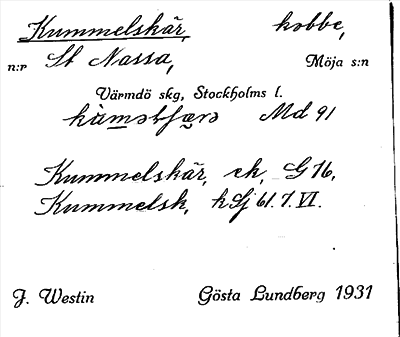 Kummelskär, kobbe,
n:r St Nassa, Möja s:n
Värmdö skg, Stockholms l.
Md 91
Kummelskär, ek, G 76,
Kummelsk, hSj 61.7.VI.
J. Westin Gösta Lundberg 1931